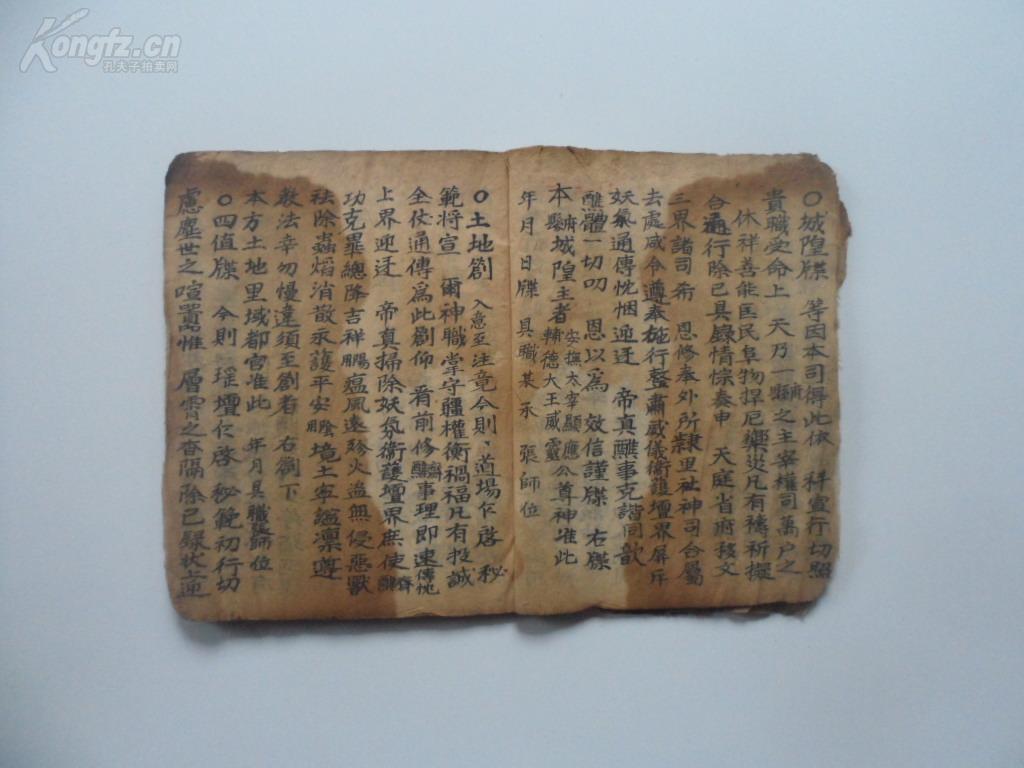 Kongfz.cn
孔夫子拍卖网
〇城隍牒 等因本司得此依 科宣行切照
貴職受命上 天乃一府縣之主宰權司萬户之
休祥善能匡民阜物捍厄禦災凡有禱祈擬
合通行除已具錄情悰奏申 天庭省府移文
三界諸司希 恩修奉外所隸里祉神司合屬
去處咸令遵奉施行整肅威儀衛護壇界屏斥
妖氛通傳怳烟迎迓 帝真醮事克諧同歆
醮體一切叨 恩以為 效信謹牒 右牒
本府縣城隍主者 安撫太宰顯應公尊神准此
輔德大王威靈
年月 日牒 具職某承 張師位
〇土地劄 入意至注竟今則、道場仁啓 秘
範將宣 爾神職掌守疆權衡禍福凡有投誠
全仗通傳為此劄仰 看前修齋醮事理即速傳怳
上界迎迓 帝真掃除妖氛衛護壇界庶使齋醮
功克畢總降吉祥賜瘟風遠殄火盗無侵惡獸
祛除蟲熖消散永護平安陰境土寧謐凜遵
教法幸勿慢違須至劄者 右劄下
本方土地里域都官准此 年月具職張師位
〇四值牒 今則 瑶壇仁啓 秘範初行切
慮塵世之喧囂惟 層霄之杳隔除已錄狀上迎